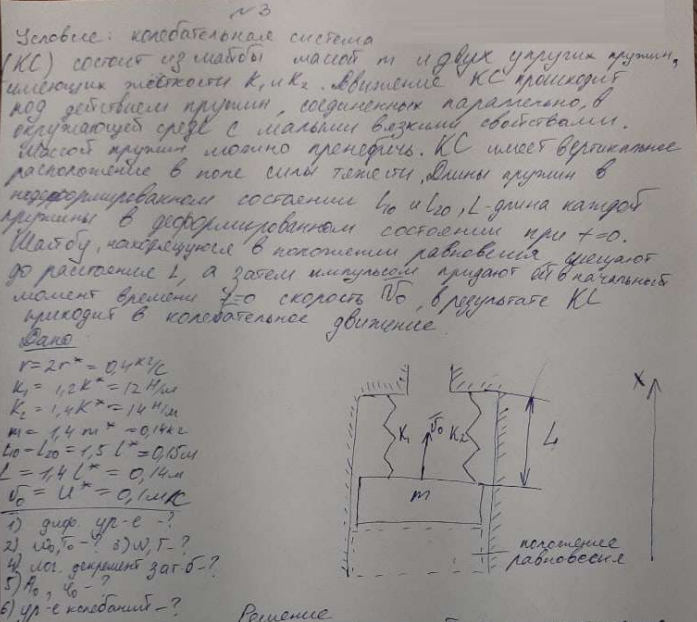 №3
Условие: колебательная система
(КС) состоит из шайбы массой m и двух упругих пружин,
имеющих жёсткости K₁ и K₂. Движение КС происходит
под действием пружин, соединенных паралельно, в
окружающей среде с малыми вязкими свойствами.
Массой пружин можно пренебречь. КС имеет вертикальное
расположение в поле силы тяжести. Длины пружин в
недеформированном состоянии L₁₀ и L₂₀, L-длина каждой
пружины в деформированном состоянии при t=0.
Шайбу, находящуюся в положении равновесия смещают
до растояние L, а затем импульсом придают ей в начальный
момент времени t=0 скорость v₀, в результате КС
приходит в колебательное движение.
Дано:
r=2r*=0,4 кг/с
K₁=1,2K*=12 Н/м
K₂=1,4K*=14 Н/м
m=1,4m*=0,14кг
L₁₀=L₂₀=1,5 l*=0,15м
L=1,4 l*=0,14м
v₀=U*=0,1м/с
1) диф. ур-е -?
2) ω₀,T₀-? 3) ω,T-?
4) лог. декремент зат-б-?
5) A₀, φ₀-?
6) ур-е колебаний-?
K₁
v̄₀
K₂
L
X
m
положение
равновесия
Решение